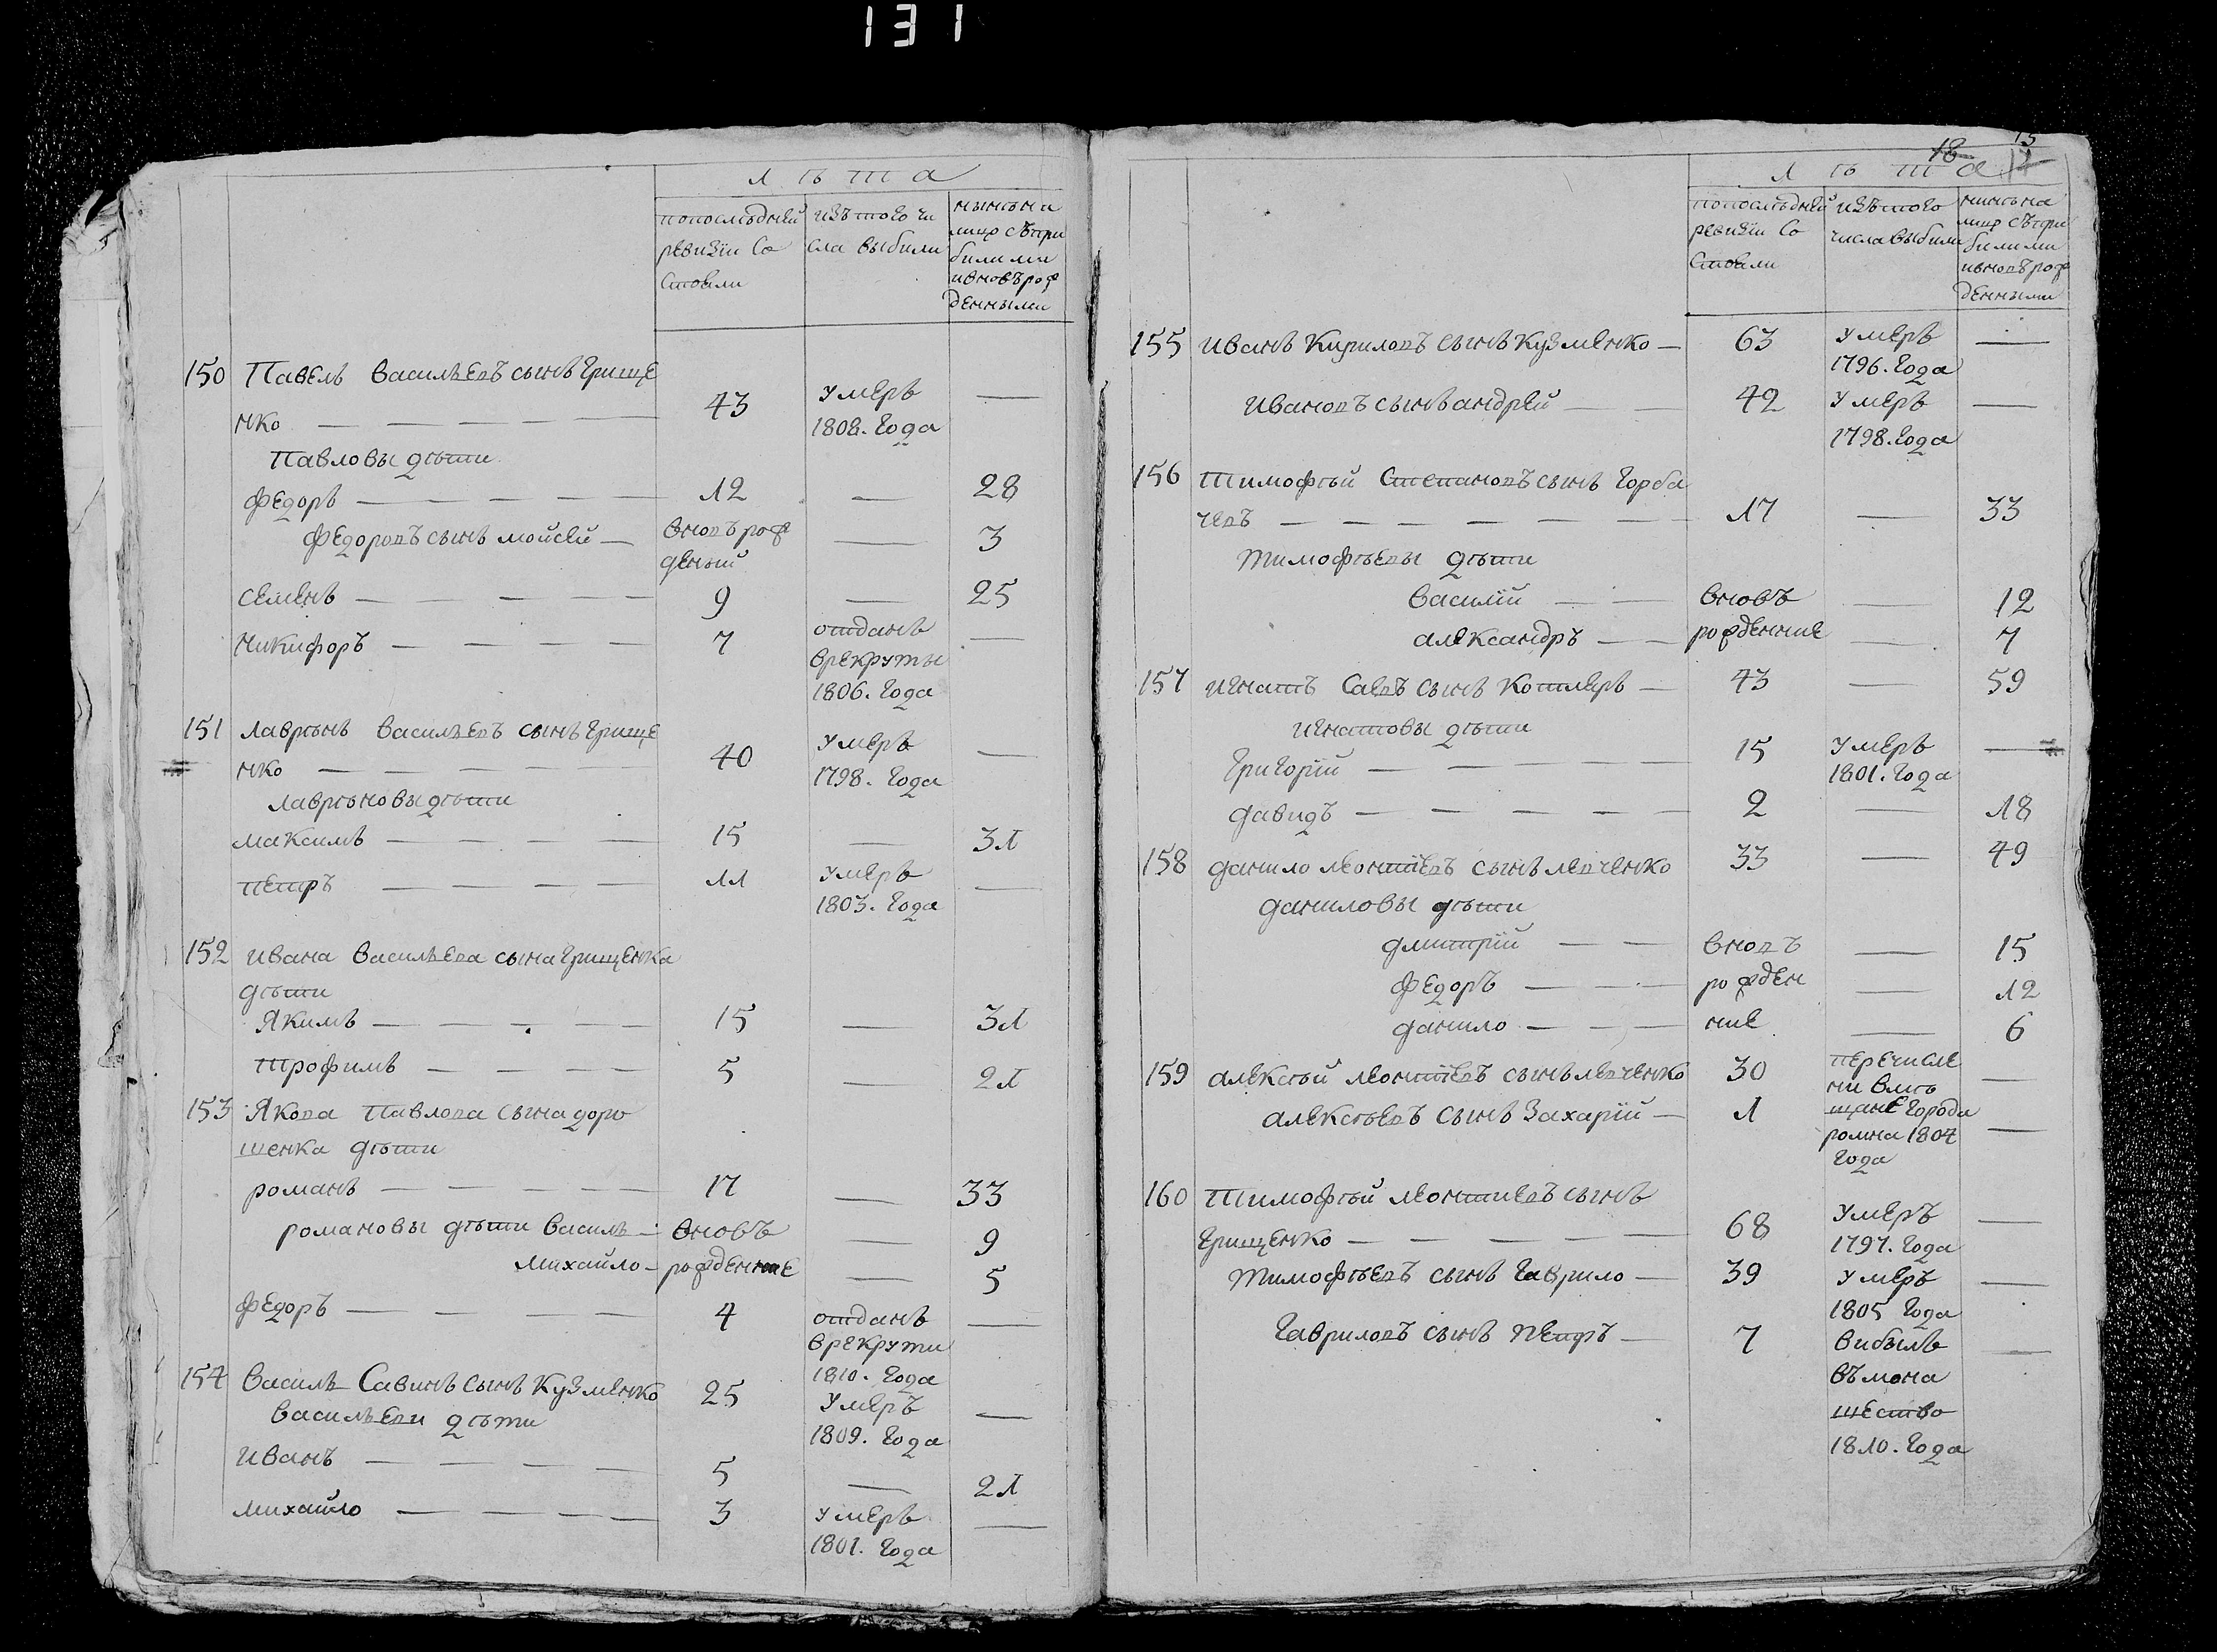 131
лѣта
попослѣдней
ревизіи Со
Стояли
изътого чи
сла выбыли
нынѣна
лицо съпри
былыми
ивновьрож
денными
150 Павелъ Васильевъ сынъ Грище
нко — 43 умеръ —
1808. Года
Павловы дѣти
Федоръ — 12 — 28
Федоровъ сынъ мойсей — вновьрож — 3
деный
Семенъ — 9 — 25
Никифоръ — 7 отданъ —
врекруты
1806. Года
151 Лаврѣнъ Васильевъ сынъ Грище
нко — 40 умеръ —
1798. Года
Лаврѣновы дѣти
Максимъ — 15 — 31
Петръ — 11 умеръ —
1803. Года
152 Ивана Васильева сына Грищенка
дѣти
Якимъ — 15 — 31
Трофимъ — 5 — 21
153 Якова Павлова сына доро
шенка дѣти
романъ — 17 — 33
романовы дѣти Василь — вновь — 9
михайло — рожденние — 5
Федоръ — 4 отданъ —
врекрути
1810. Года
154 Василь Савинъ сынъ Кузменко 25 умеръ —
1809. Года
Васильеви дѣти
Иванъ — 5 — 21
михайло — 3 умеръ —
1801. Года
18 13
12
лѣта
попослѣдней
ревизіи Со
Стояли
изътого
числа выбили
нинѣна
лицо съпри
былыми
ивновърож
денными
155 Иванъ Кириловъ сынъ Кузменко — 63 умеръ —
1796. Года
Ивановъ сынъ андрей — 42 умеръ —
1798. Года
156 Тимофѣй Степановъ сынъ Горба
чевъ — 17 — 33
Тимофѣевы дѣти
Василій — вновь — 12
александръ — рожденние — 7
157 Игнатъ Савъ сынъ Котляръ — 43 — 59
Игнатовы дѣти
Григорій — 15 умеръ —
1801. Года
давидъ — 2 — 18
158 данило леонтіевъ сынъ левченко 33 — 49
даниловы дѣти
дмитрій — вновъ — 15
Федоръ — рожден — 12
данило — ние — 6
159 алексѣй леонтіевъ сынъ левченко 30 перечисле —
ни вмѣ
алексѣевъ сынъ Захарій — 1 щане Города —
ромна 1807
Года
160 Тимофѣй леонтиевъ сынъ
Грищенко — 68 умеръ —
1797. Года
Тимофѣевъ сынъ Гаврило — 39 умеръ —
1805 Года
Гавриловъ сынъ Петръ — 7 вибылъ —
въмона
шество
1810. Года